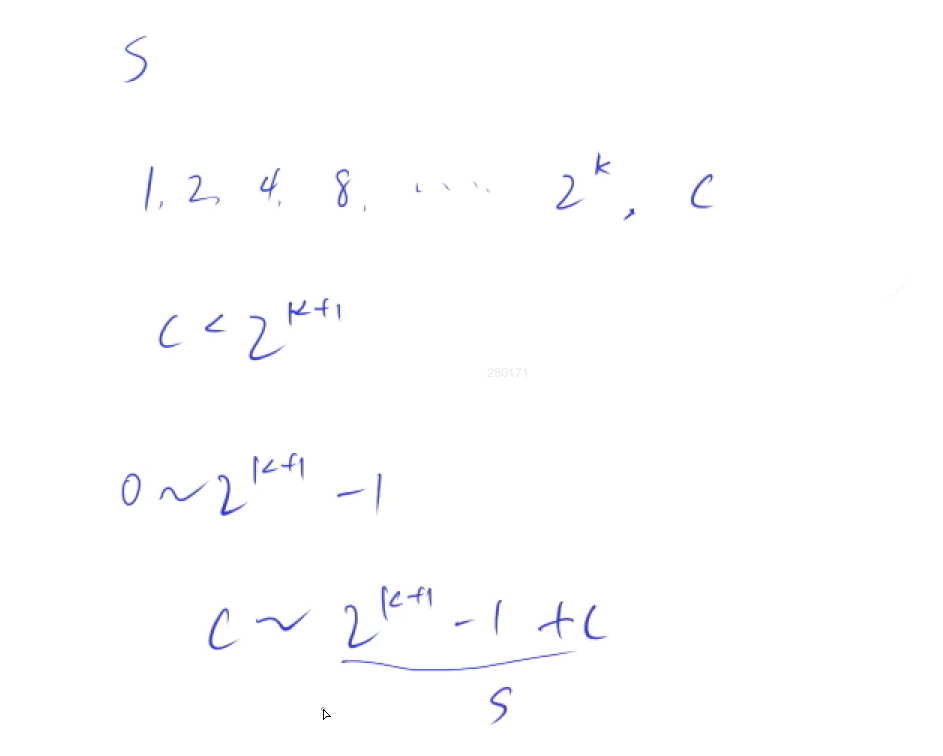 S
1, 2, 4, 8, ···· 2^k, C
C < 2^{k+1}
280171
0 ~ 2^{k+1} - 1
C ~ 2^{k+1} - 1 + C
S